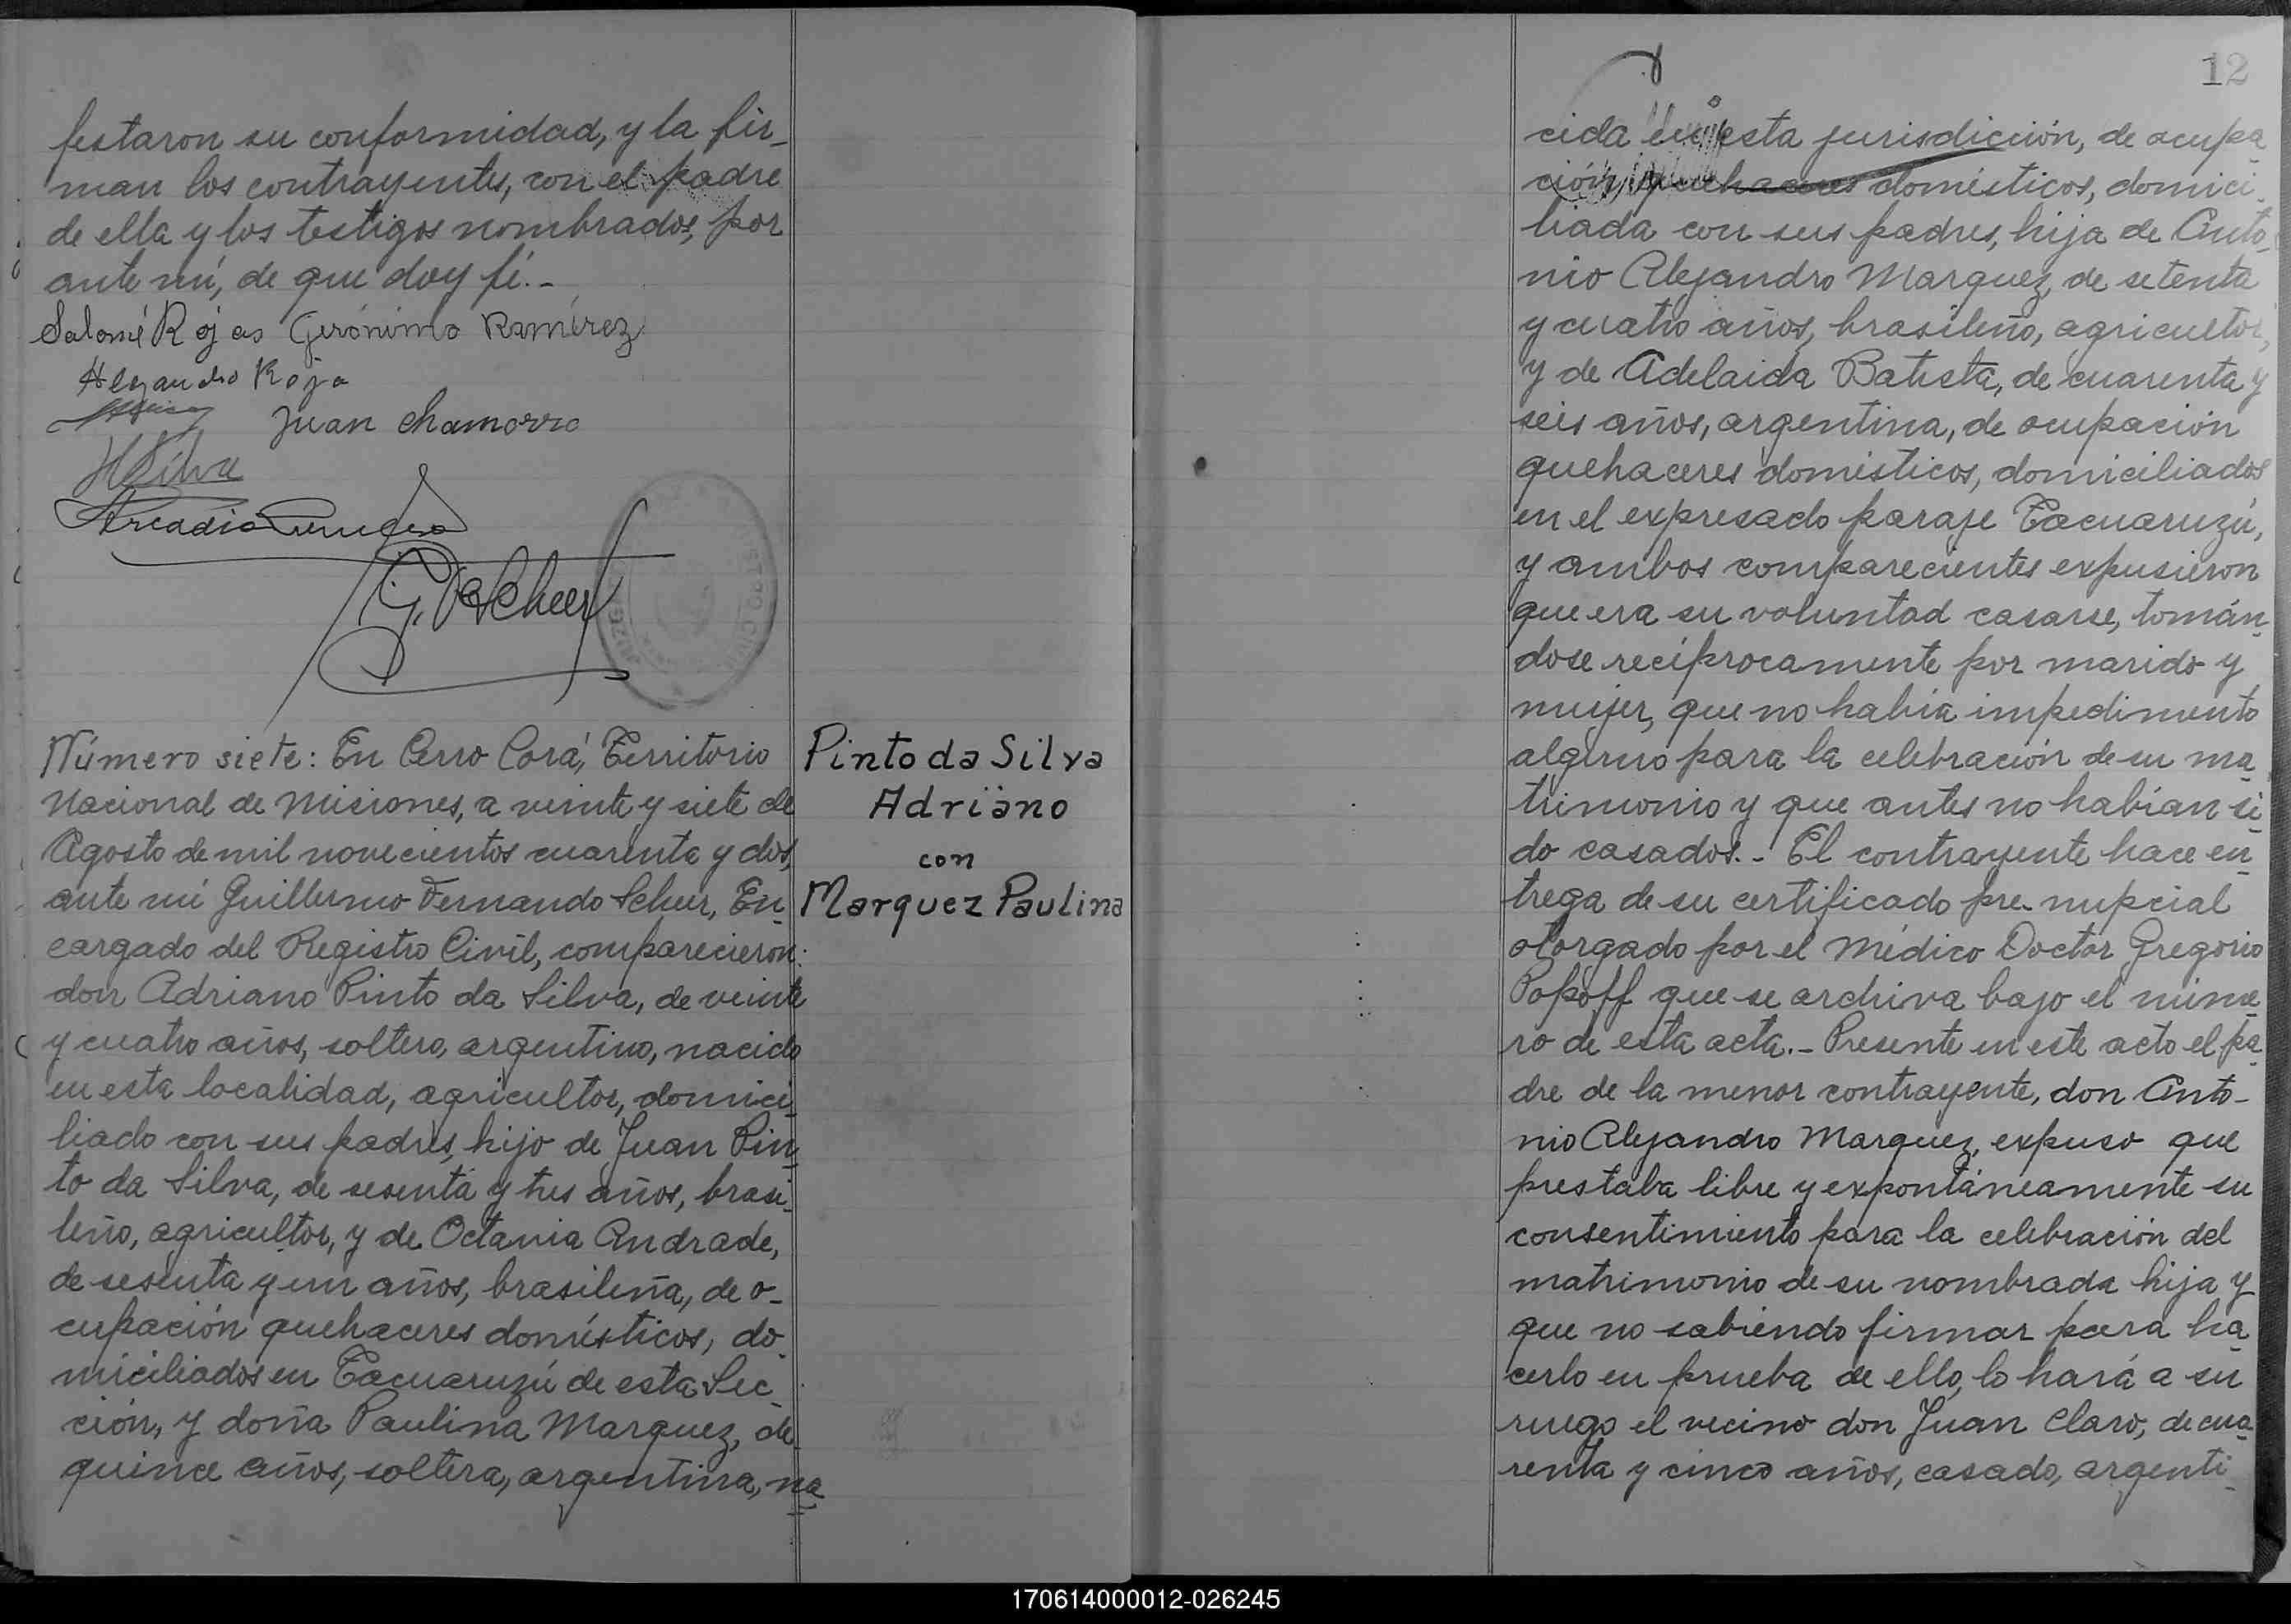 festaron su conformidad, y la fir_
man los contrayentes, con el padre
de ella y los testigos nombrados, por
ante mí, de que doy fé._
Salomé Rojas Gerónimo Ramírez
Alejandro Roja
Juan Chamorro
HSilva
Arcadio
G. F. Scheer
Número siete: En Cerro Corá, Territorio
Nacional de Misiones, a veinte y siete de
Agosto de mil novecientos cuarenta y dos,
ante mí Guillermo Fernando Scheer, En_
cargado del Registro Civil, comparecieron:
don Adriano Pinto da Silva, de veinte
y cuatro años, soltero, argentino, nacido
en esta localidad, agricultor, domici_
liado con sus padres, hijo de Juan Pin_
to da Silva, de sesenta y tres años, brasi_
leño, agricultor, y de Octavia Andrade,
de sesenta y un años, brasileña, de o_
cupación quehaceres domésticos, do_
miciliados en Tacuaruzú de esta Sec_
ción, y doña Paulina Marquez, de
quince años, soltera, argentina, na_
Pinto da Silva
Adriano
con
Marquez Paulina
12
cida en esta jurisdicción, de ocupa_
ción, quehaceres domésticos, domici_
liada con sus padres, hija de Anto_
nio Alejandro Marquez, de setenta
y cuatro años, brasileño, agricultor,
y de Adelaida Batista, de cuarenta y
seis años, argentina, de ocupación
quehaceres domésticos, domiciliados
en el expresado paraje Tacuaruzú,
y ambos comparecientes expusieron
que era su voluntad casarse, tomán_
dose recíprocamente por marido y
mujer, que no había impedimento
alguno para la celebración de su ma_
trimonio y que antes no habían si_
do casados._ El contrayente hace en_
trega de su certificado pre-nupcial
otorgado por el Médico Doctor Gregorio
Popoff que se archiva bajo el núme_
ro de esta acta._ Presente en este acto el pa_
dre de la menor contrayente, don Anto_
nio Alejandro Marquez, expuso que
prestaba libre y expontáneamente su
consentimiento para la celebración del
matrimonio de su nombrada hija y
que no sabiendo firmar para ha_
cerlo en prueba de ello, lo hará a su
ruego el vecino don Juan Claro, de cua_
renta y cinco años, casado, argenti_
170614000012-026245